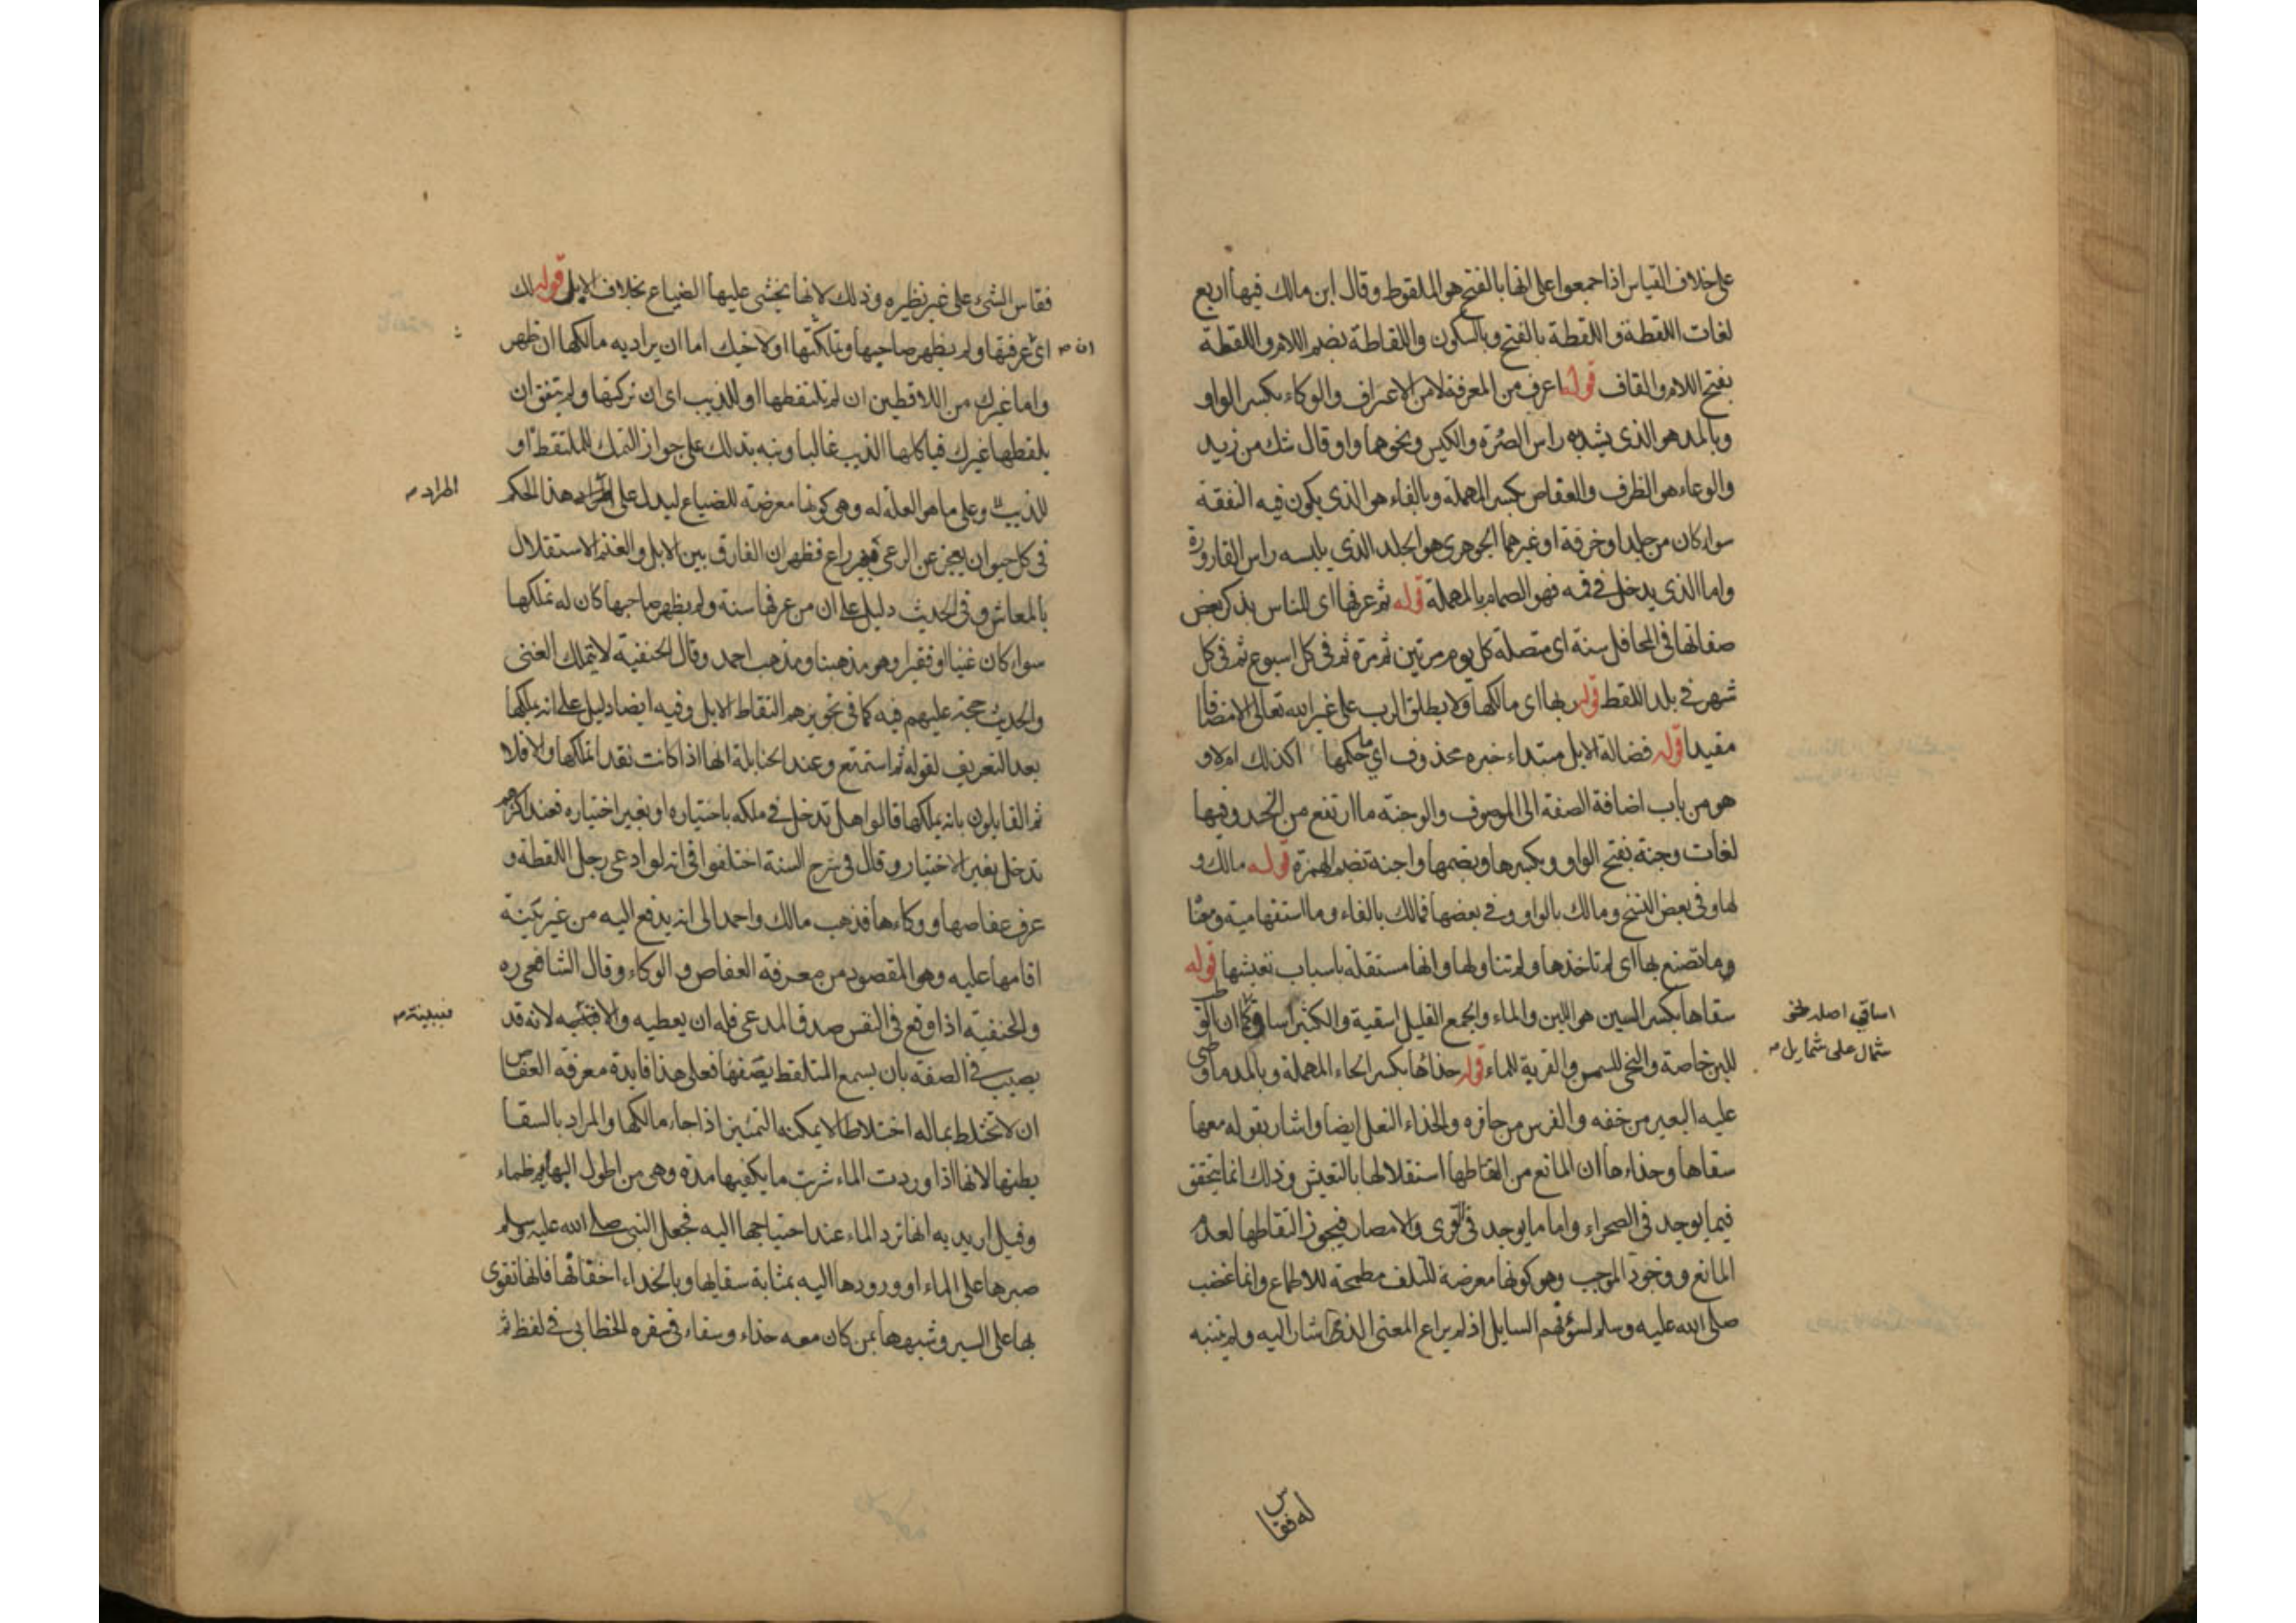 على خلاف القياس اذا جمعوا على انها بالفتح هو الملقوط وقال ابن مالك فيها اربع
لغات اللقطة واللقطة بالفتح وبالسكون واللقاطة بضم اللام واللقطة
بفتح اللام والقاف قوله اعرف من المعرفة لا من الاعتراف والوكاء بكسر الواو
وبالمد هو الذي يشد به راس الصرة والكيس ونحوهما واو قال شك من زيد
والوعاء هو الظرف والعفاص بكسر المهملة وبالفاء هو الذي يكون فيه النفقة
سواء كان من جلد او خرقة او غيرهما الجوهري هو الجلد الذي يلبسه راس القارورة
واما الذي يدخل في فمه فهو الصمام بالمهملة قوله ثم عرفها اى للناس بذكر بعض
صفاتها في المحافل سنة اى متصلة كل يوم مرتين ثم مرة ثم في كل اسبوع ثم في كل
شهر في بلد اللقط قوله ربها اى مالكها ولا يطلق الرب على غير الله تعالى الا مضافا
مقيدا قوله فضالة الابل مبتداء خبره محذوف اي ما حكمها اكذلك ام لا و
هو من باب اضافة الصفة الى الموصوف والوجنة ما ارتفع من الخد وفيها
لغات وجنة بفتح الواو وبكسرها وبضمها واجنة بضم الهمزة قوله مالك و
لها وفي بعض النسخ ومالك بالواو وفي بعضها فمالك بالفاء وما استفهامية ومعناه
وما تصنع بها اى لم تاخذها ولم تتناولها وانها مستقلة باسباب تعيشها قوله
سقاها بكسر السين هو اللبن والماء والجمع القليل اسقية والكثير اساقي كما ان الوطب
للبن خاصة والنحى للسمن والقربة للماء قوله حذاها بكسر الحاء المهملة وبالمد ما وطى
عليه البعير من خفه والفرس من حافره والحذاء النعل ايضا واشار بقوله معها
سقاها وحذاءها ان المانع من التقاطها استقلالها بالتعيش وذلك انما يتحقق
فيما يوجد في الصحراء واما ما يوجد في القرى والامصار فيجوز التقاطها لعدم
المانع ووجود الموجب وهو كونها معرضة للتلف مطمحة للاطماع وانما غضب
صلى الله عليه وسلم لسوء فهم السايل اذ لم يراع المعنى الذي اشار اليه ولم يتنبه
اساقي اصله
شمال على شمايل
له فقاس
فقاس الشيء على غير نظيره وذلك لانها يخشى عليها الضياع بخلاف الابل قوله لك
ان
اي عرفتها ولم يظهر صاحبها وتملكتها او لاخيك اما ان يراد به مالكها ان ظهر
واما غيرك من اللاقطين ان لم تلتقطها او للذيب اى ان تركتها ولم يتفق ان
يلقطها غيرك فياكلها الذيب غالبا ونبه بذلك على جواز التملك للملتقط او
للذيب وعلى ما هو العلة له وهي كونها معرضة للضياع ليدل على اطراد هذا الحكم
اطراد
في كل حيوان يعجز عن الرعى بغير راع فظهر ان الفارق بين الابل والغنم الاستقلال
بالمعاش وفي الحديث دليل على ان من عرفها سنة ولم يظهر صاحبها كان له تملكها
سواء كان غنيا او فقيرا وهو مذهبنا ومذهب احمد وقال الحنفية لا يتملك الغنى
والحديث حجة عليهم فيه كما في تجويزهم التقاط الابل وفيه ايضا دليل على انه يملكها
بعد التعريف لقوله ثم استمتع وعند الحنابلة انها اذا كانت نقدا تملكها والا فلا
ثم القايلون بانه يملكها قالوا هل تدخل في ملكه باختياره او بغير اختياره فعند اكثرهم
تدخل بغير الاختيار وقال في شرح السنة اختلفوا في انه لو ادعى رجل اللقطة و
عرف عفاصها ووكاءها فذهب مالك واحمد الى انه يدفع اليه من غير بينة
اقامها عليه وهو المقصود من معرفة العفاص والوكاء وقال الشافعي ره
والحنفية اذا وقع في النفس صدق المدعى فله ان يعطيه والا فببينة لانه قد
فببينة
يصيب في الصفة بان يسمع الملتقط يصفها فعلى هذا فايدة معرفة العفاص
ان لا تختلط بماله اختلاطا لا يمكنه التمييز اذا جاء مالكها والمراد بالسقا
بطنها لانها اذا وردت الماء شربت ما يكفيها مدة وهي من اطول البهايم ظماء
وقيل اريد به انها ترد الماء عند احتياجها اليه فجعل النبي صلى الله عليه وسلم
صبرها على الماء او ورودها اليه بمثابة سقايها وبالحذاء اخفافها فانها تقوى
بها على السير وشبهها بمن كان معه حذاء وسقاء في سفره الخطابي في لفظ ثم